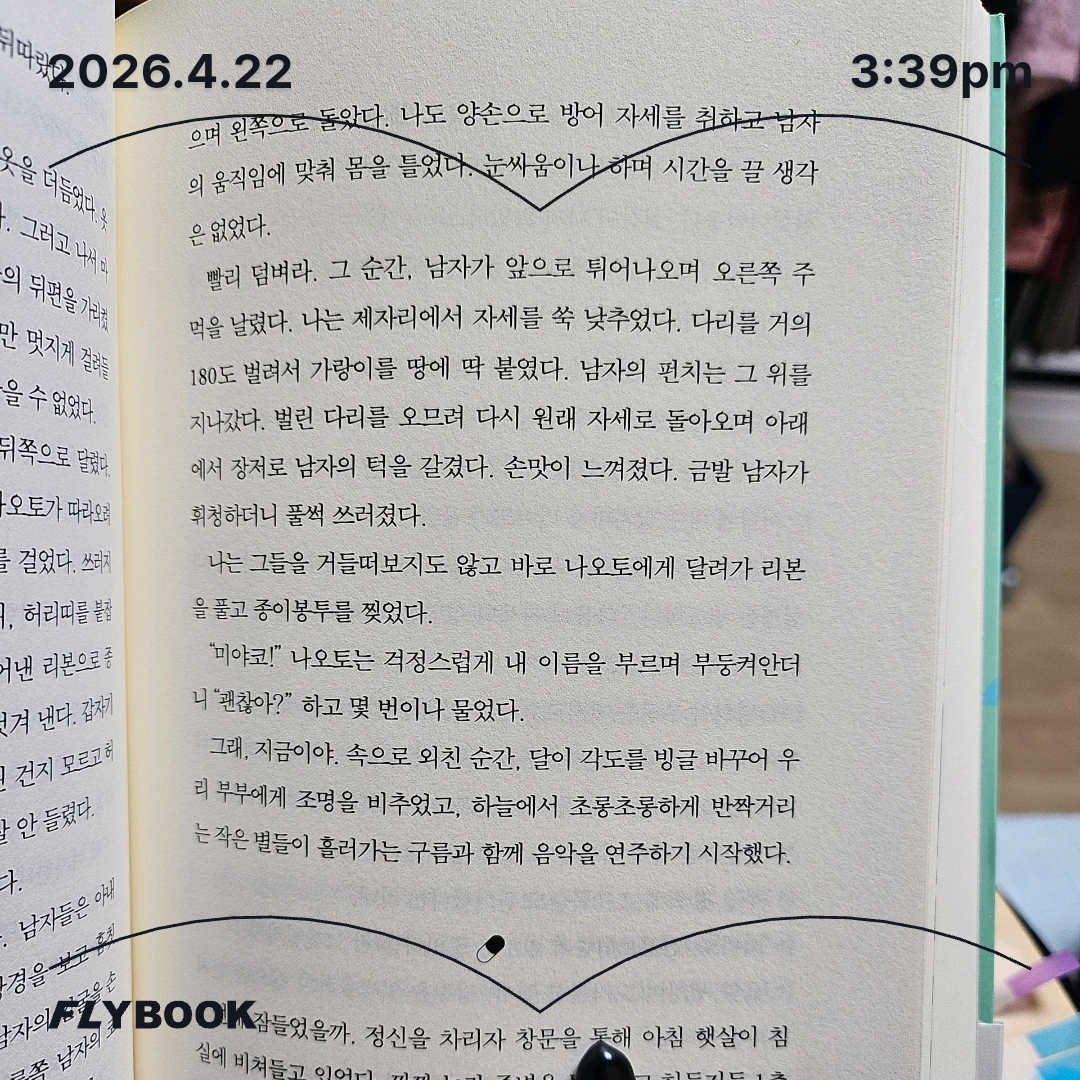 2026.4.22
3:39pm
뒤따랐다.
옷을 더듬었다. 옷
그러고 나서 마
의 뒤편을 가리켰
만 멋지게 걸려들
을 수 없었다.
뒤쪽으로 달렸다.
나오토가 따라오려
를 걸었다. 쓰러지
허리띠를 붙잡
어낸 리본으로 종
벗겨 낸다. 갑자기
건지 모르고 허
말 안 들렸다.
다.
남자들은 아내
으며 왼쪽으로 돌았다. 나도 양손으로 방어 자세를 취하고 남자
의 움직임에 맞춰 몸을 틀었다. 눈싸움이나 하며 시간을 끌 생각
은 없었다.
빨리 덤벼라. 그 순간, 남자가 앞으로 튀어나오며 오른쪽 주
먹을 날렸다. 나는 제자리에서 자세를 쑥 낮추었다. 다리를 거의
180도 벌려서 가랑이를 땅에 딱 붙였다. 남자의 펀치는 그 위를
지나갔다. 벌린 다리를 오므려 다시 원래 자세로 돌아오며 아래
에서 장저로 남자의 턱을 갈겼다. 손맛이 느껴졌다. 금발 남자가
휘청하더니 풀썩 쓰러졌다.
나는 그들을 거들떠보지도 않고 바로 나오토에게 달려가 리본
을 풀고 종이봉투를 찢었다.
“미야코!” 나오토는 걱정스럽게 내 이름을 부르며 부둥켜안더
니 “괜찮아?” 하고 몇 번이나 물었다.
그래, 지금이야. 속으로 외친 순간, 달이 각도를 빙글 바꾸어 우
리 부부에게 조명을 비추었고, 하늘에서 초롱초롱하게 반짝거리
는 작은 별들이 흘러가는 구름과 함께 음악을 연주하기 시작했다.
잠들었을까. 정신을 차리자 창문을 통해 아침 햇살이 침
실에 비쳐들고 있었다.
FLYBOOK